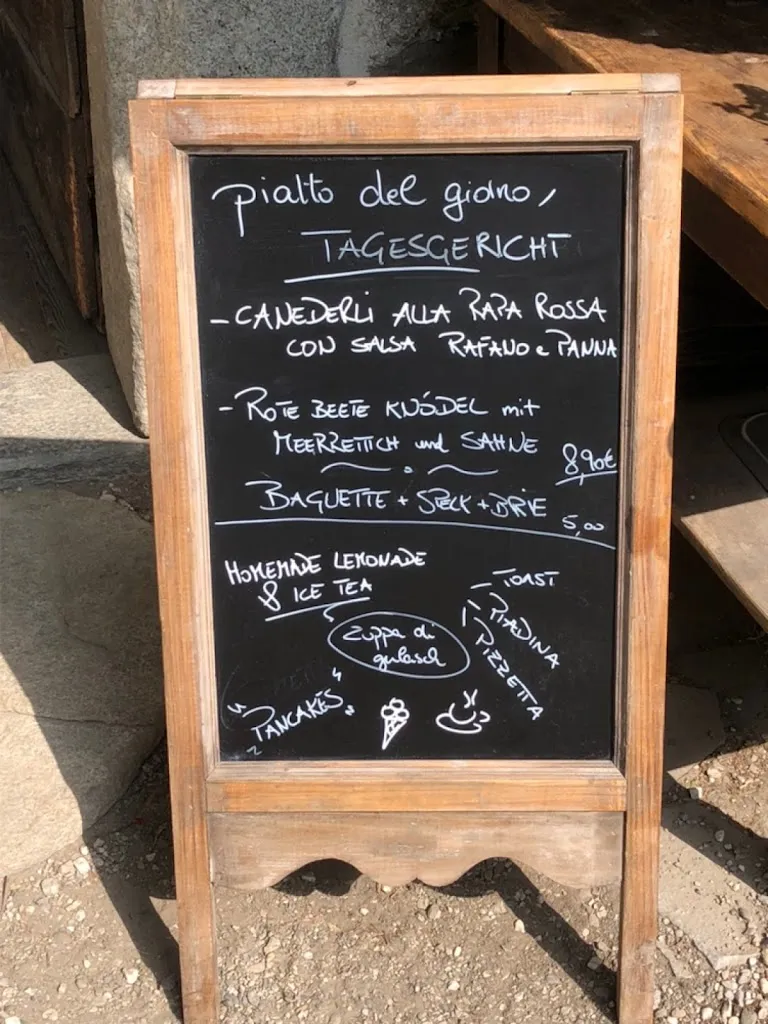 pialto del giorno,
TAGESGERICHT
- CANEDERLI ALLA RAPA ROSSA
CON SALSA RAFANO e PANNA
- ROTE BEETE KNÖDEL mit
MEERRETTICH und SAHNE
8,90€
BAGUETTE + SPECK + BRIE
5,00
HOMEMADE LEMONADE
& ICE TEA
- TOAST
- PIADINA
- PIZZETTA
Zuppa di
gulasch
"PANCAKES"